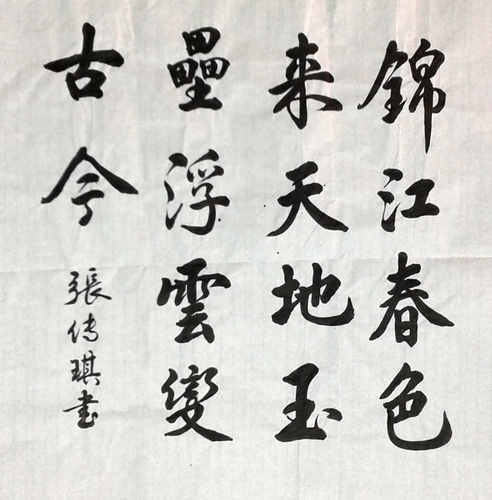 錦江春色
来天地玉
壘浮雲變
古今
張傳琪書